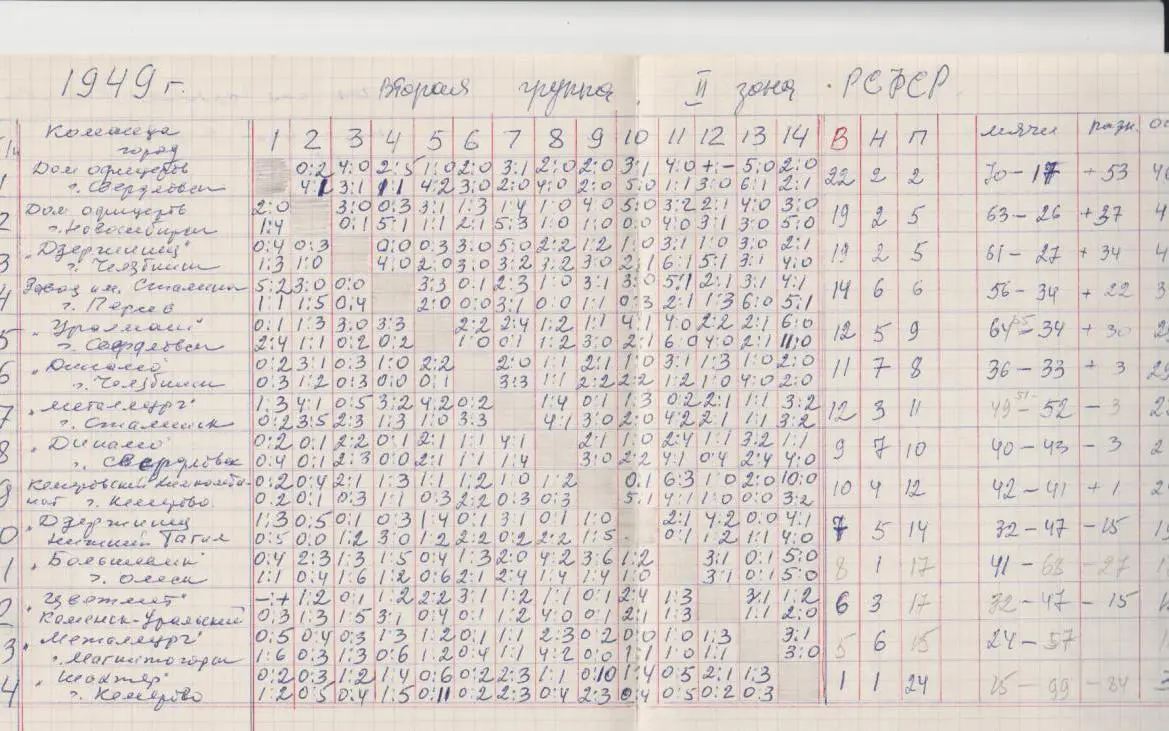 1949 г. Вторая группа II зона РСФСР
Команда 1 2 3 4 5 6 7 8 9 10 11 12 13 14 В Н П мячи разн.
город
Дом офицеров 0:2 4:0 2:5 1:0 2:0 3:1 2:0 2:0 3:1 4:0 +:- 5:0 2:0
г. Свердловск 4:1 3:1 1:1 4:2 3:0 2:0 4:0 2:0 5:0 1:1 3:0 6:1 2:1 22 2 2 70-17 +53
Дом офицеров 2:0 3:0 0:3 3:1 1:3 1:4 1:0 4:0 5:0 3:2 2:1 4:0 3:0
г. Новосибирск 1:4 0:1 5:1 1:1 2:1 5:3 1:0 1:0 0:0 4:0 3:1 3:0 5:0 19 2 5 63-26 +37
3 "Дзержинец" 0:4 0:3 0:0 0:3 3:0 5:0 2:2 1:2 1:0 3:1 1:0 3:0 2:1
г. Челябинск 1:3 1:0 4:0 2:0 3:0 3:2 3:2 3:0 2:1 6:1 5:1 3:1 4:0 19 2 5 61-27 +34
4 Завод им. Сталина 5:2 3:0 0:0 3:3 0:1 2:3 1:0 3:1 3:0 5:1 2:1 3:1 4:1
г. Пермь 1:1 1:5 0:4 2:0 0:0 3:1 0:0 1:1 0:3 2:1 1:3 6:0 5:1 14 6 6 56-34 +22
5 "Уралмаш" 0:1 1:3 3:0 3:3 2:2 2:4 1:2 1:1 4:1 4:0 2:2 2:1 6:0
г. Свердловск 2:4 1:1 0:2 0:2 1:0 0:1 1:2 3:0 2:1 6:0 4:0 2:1 11:0 12 5 9 64-34 +30
6 "Динамо" 0:2 3:1 0:3 1:0 2:2 2:0 1:1 2:1 1:0 3:1 1:3 1:0 2:0
г. Челябинск 0:3 1:2 0:3 0:0 0:1 3:3 1:1 2:2 2:2 1:2 1:0 4:0 2:0 11 7 8 36-33 +3
7 "Металлург" 1:3 4:1 0:5 3:2 4:2 0:2 1:4 0:1 1:3 0:2 2:1 1:1 3:2
г. Сталинск 0:2 3:5 2:3 1:3 1:0 3:3 4:1 3:0 2:0 4:2 2:1 1:1 3:2 12 3 11 49-52 -3
8 "Динамо" 0:2 0:1 2:2 0:1 2:1 1:1 4:1 2:1 1:0 2:4 1:1 3:2 1:1
г. Свердловск 0:4 0:1 2:3 0:0 2:1 1:1 1:4 3:0 2:2 4:1 0:4 2:4 4:0 9 7 10 40-43 -3
Кемеровский химкомби- 0:2 0:4 2:1 1:3 1:1 1:2 1:0 1:2 0:1 6:3 1:0 2:0 10:0
нат г. Кемерово 0:2 0:1 0:3 1:1 0:3 2:2 0:3 0:3 5:1 4:1 1:0 0:0 3:2 10 4 12 42-41 +1
"Дзержинец 1:3 0:5 0:1 0:3 1:4 0:1 3:1 0:1 1:0 2:1 4:2 0:0 4:1
Нижний Тагил 0:5 0:0 1:2 3:0 1:2 2:2 0:2 2:2 1:5 0:1 1:2 1:1 4:0 7 5 14 32-47 -15
"Большевик" 0:4 2:3 1:3 1:5 0:4 1:3 2:0 4:2 3:6 1:2 3:1 0:1 5:0
г. Омск 1:1 0:4 1:6 1:2 0:6 2:1 2:4 1:4 1:4 1:0 3:1 0:1 5:0 8 1 17 41-68 -27
"Цветмет" -:+ 1:2 0:1 1:2 2:2 3:1 1:2 1:1 0:1 2:4 1:3 3:1 1:2
Каменск-Уральский 0:3 1:3 1:5 3:1 0:4 0:1 1:2 4:0 0:1 2:1 1:3 1:1 2:0 6 3 17 32-47 -15
"Металлург" 0:5 0:4 0:3 1:3 1:2 0:1 1:1 2:3 0:2 0:0 1:0 1:3 3:1
г. Магнитогорск 1:6 0:3 1:3 0:6 1:2 0:4 1:1 4:2 0:0 1:1 1:0 1:1 3:0 5 6 15 24-57
"Шахтер" 0:2 0:3 1:2 1:4 0:6 0:2 2:3 1:1 0:10 1:4 0:5 2:1 1:3
г. Кемерово 1:2 0:5 0:4 1:5 0:11 0:2 2:3 0:4 2:3 0:4 0:5 0:2 0:3 1 1 24 15-99 -84